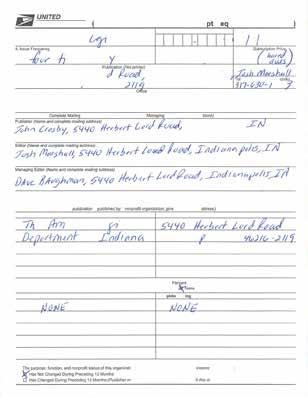 UNITED
( pt eq
Legn
4. Issue Frequency
Subscription Price
four ti y
(word dues)
Publication (Not printer)
d Road,
Josh Marshall
, 2119
317-630-1 7
Office
Complete Mailing Managing blank)
Publisher (Name and complete mailing address)
John Crosby, 5440 Herbert Lord Road, IN
Editor (Name and complete mailing address)
Josh Marshall, 5440 Herbert Lord Road, Indianapolis, IN
Managing Editor (Name and complete mailing address)
Dave Baughman, 5440 Herbert Lord Road, Indianapolis, IN
publication published by nonprofit organization, give address)
Th Am gi 5440 Herbert Lord Road
Department Indiana P 46216-2119
Percent
None
NONE NONE
The purpose, function, and nonprofit status of this organizat
Has Not Changed During Preceding 12 Months
Has Changed During Preceding 12 Months (Publisher m